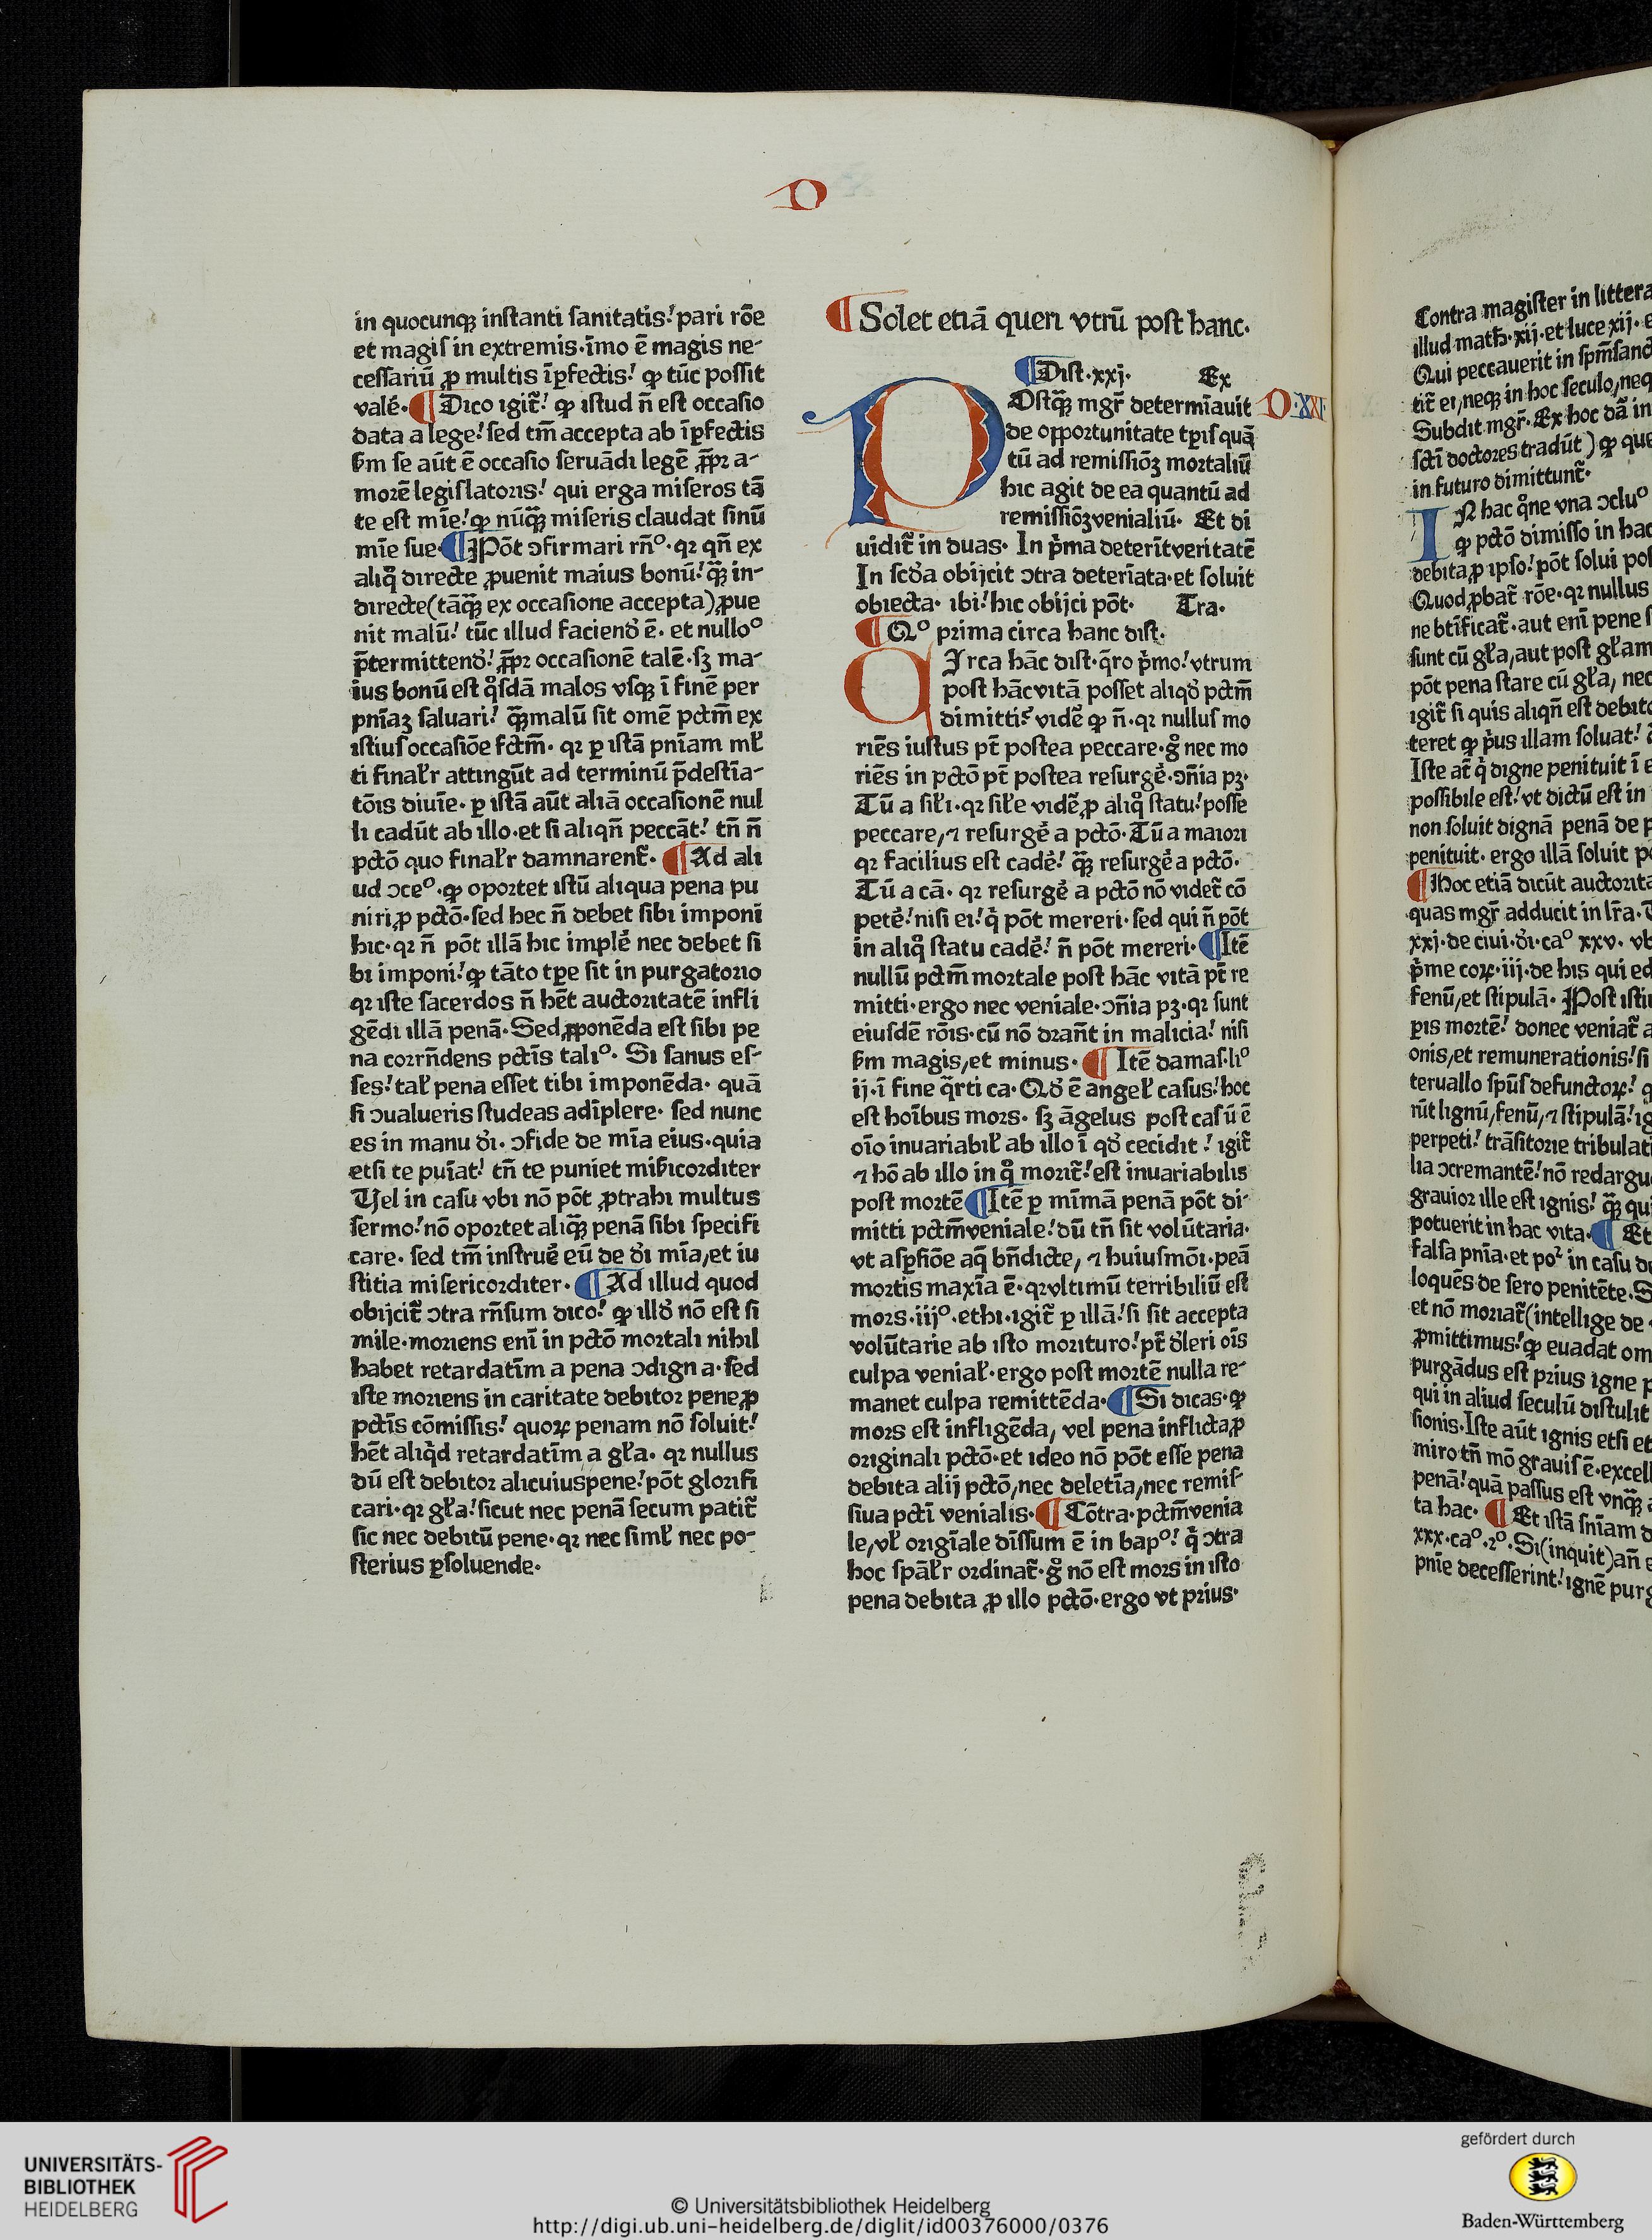 D
in quocunqꝫ inſtanti ſanitatis! pari rōe
et magiſ in extremis·īmo ē magis ne-
ceſſariū ꝓ multis īꝑfectis! ꝙ tūc poſſit
valē· ¶ Dico igit̄! ꝙ iſtud n̄ eſt occaſio
data a lege! ſed tm̄ accepta ab īꝑfectis
ẜm ſe aūt ē occaſio ſeruādi legē ꝓpꝛ a-
moꝛē legiſlatoꝛis! qui erga miſeros tā
te eſt mīe! ꝙ nūqꝫ̄ miſeris claudat ſinū
mīe ſue· ¶ Pōt ↄfirmari rn̄º·qꝛ qn̄ ex
aliqͦ directe ꝓuenit maius bonū! qꝫ̄ in-
directe(tāqꝫ̄ ex occaſione accepta)ꝓue
nit malū! tūc illud faciendͦ ē· et nulloº
p̄termittendͦ! ꝓpꝛ occaſionē talē·ſꝫ ma-
ius bonū eſt qͦſdā malos vſqꝫ ī finē per
pnīaꝫ ſaluari! qꝫ̄ malū ſit omē pctm̄ ex
iſtiuſ occaſiōe fctm̄· qꝛ ꝑ iſtā pnīam ml̄
ti final̄r attingūt ad terminū p̄deſtīa-
tōis diuīe· ꝑ iſtā aūt aliā occaſionē nul
li cadūt ab illo·et ſi aliqn̄ peccāt! tn̄ n̄
pctō quo final̄r damnarent̄· ¶ Ad ali
ud ↄceº·ꝙ opoꝛtet iſtū aliqua pena pu
niri ꝓ pctō·ſed hec n̄ debet ſibi imponi
hic·qꝛ n̄ pōt illā hic implē nec debet ſi
bi imponi! ꝙ tāto tꝑe ſit in purgatoꝛio
qꝛ iſte ſacerdos n̄ hēt auctoꝛitatē infli
gēdi illā penā·Sed ꝓponēda eſt ſibi pe
na coꝛrn̄dens pctīs taliº· Si ſanus eſ-
ſes! tal̄ pena eſſet tibi imponēda· quā
ſi ↄualueris ſtudeas adīplere· ſed nunc
es in manu dͦi· ↄfide de mīa eius·quia
etſi te puīat! tn̄ te puniet miẜicoꝛditer
Uel in caſu vbi nō pōt ꝓtrahi multus
ſermo! nō opoꝛtet aliqꝫ̄ penā ſibi ſpecifi
care· ſed tm̄ inſtruē eū de dͦi mīa,et iu
ſtitia miſericoꝛditer· ¶ Ad illud quod
obijcit̄ ↄtra rn̄ſum dico! ꝙ illdͦ nō eſt ſi
mile·moꝛiens enī in pctō moꝛtali nihil
habet retardatīm a pena ↄdigna·ſed
iſte moꝛiens in caritate debitoꝛ pene ꝓ
pctīs cōmiſſis! quoꝝ penam nō ſoluit!
hēt aliqͥd retardatīm a gl̄a· qꝛ nullus
dū eſt debitoꝛ alicuius pene! pōt gloꝛifi
cari·qꝛ gl̄a! ſicut nec penā ſecum patit̄
ſic nec debitū pene·qꝛ nec ſiml̄ nec po-
ſterius ꝑſoluende·
¶ Solet etiā queri vtrū poſt hanc·
¶ Diſt·xxj· Ex
POſtqꝫ̄ mgr̄ determīauit
D·XXI
de oꝓpoꝛtunitate tꝑiſ quā
tū ad remiſſiōꝫ moꝛtaliū
hic agit de ea quantū ad
remiſſiōꝫ venialiū· Et di
uidit̄ in duas· In pͥma deterīt veritatē
In ſcdͦa obijcit ↄtra deterīata·et ſoluit
obiecta· ibi! hic obijci pōt· Tra·
¶ Qº pꝛima circa hanc diſt·
CIrca hāc diſt·q̄ro pͥmo! vtrum
poſt hāc vitā poſſet aliqdͦ pctm̄
dimitti? vidē ꝙ n̄·qꝛ nulluſ mo
riēs iuſtus pt̄ poſtea peccare·gͦ nec mo
riēs in pctō pt̄ poſtea reſurgē·ↄn̄ia pꝫ·
Tū a ſil̄i·qꝛ ſil̄e vidē ꝓ aliqͦ ſtatu! poſſe
peccare,⁊ reſurgē a pctō·Tū a maioꝛi
qꝛ facilius eſt cadē! qꝫ̄ reſurgē a pctō·
Tū a cā· qꝛ reſurgē a pctō nō videt̄ cō
petē! niſi ei! qͥ pōt mereri·ſed qui n̄ pōt
in aliqͦ ſtatu cadē! n̄ pōt mereri· ¶ Itē
nullū pctm̄ moꝛtale poſt hāc vitā pt̄ re
mitti·ergo nec veniale·ↄn̄ia pꝫ·qꝛ ſunt
eiuſdē rōis·cū nō dꝛān̄t in malicia! niſi
ẜm magis,et minus· ¶ Itē damaſ·liº
ij·ī fine q̄rti ca·Qdͦ ē angel̄ caſus! hoc
eſt hoībus moꝛs· ſꝫ āgelus poſt caſū ē
oīo inuariabil̄ ab illo ī qdͦ cecidit! igit̄
⁊ hō ab illo in qͦ moꝛit̄! eſt inuariabilis
poſt moꝛtē ¶ Itē ꝑ mīmā penā pōt di-
mitti pctm̄ veniale! dū tn̄ ſit volūtaria·
vt aſꝑſiōe aq̄ bn̄dicte, ⁊ huiuſmōi·peā
moꝛtis maxīa ē·qꝛ vltimū terribiliū eſt
moꝛs·iijº·ethi·igit̄ ꝑ illā! ſi ſit accepta
volūtarie ab iſto moꝛituro! pt̄ dͦleri oīs
culpa venial̄·ergo poſt moꝛtē nulla re-
manet culpa remittēda· ¶ Si dicas·ꝙ
moꝛs eſt infligēda, vel pena inflicta ꝓ
oꝛiginali pctō·et ideo nō pōt eſſe pena
debita alij pctō,nec deletīa,nec remiſ-
ſiua pctī venialis· ¶ Cōtra·pctm̄ venia
le,vl̄ oꝛigīale dīſſum ē in bapº! qͥ ↄtra
hoc ſpāl̄r oꝛdinat̄·gͦ nō eſt moꝛs in iſto
pena debita ꝓ illo pctō·ergo vt pꝛius·
Contra magiſter in littera
illud math·xij·et luce xij·
Qui peccauerit in ſpm̄ſanc
tit̄ ei,neqꝫ in hoc ſeculo,neq
Subdit mgr̄·Ex hoc dā in
ſctī doctoꝛes tradūt) ꝙ que
in futuro dimittunt̄·
IN hac qͦne vna ↄcluº
ꝙ pctō dimiſſo in hac
debita ꝓ ipſo! pōt ſolui po
Quod ꝓbat̄ rōe·qꝛ nullus
ne btīficat̄·aut enī pene
ſunt cū gl̄a,aut poſt gl̄am
pōt pena ſtare cū gl̄a, nec
igit̄ ſi quis aliqn̄ eſt debito
teret ꝙ pͥus illam ſoluat!
Iſte at̄ qͥ digne penituit ī
poſſibile eſt! vt dictū eſt in
non ſoluit dignā penā de
penituit· ergo illā ſoluit
¶ Hoc etiā dicūt auctoꝛita
quas mgr̄ adducit in lr̄a·
xxj·de ciui·dͦi·caº xxv· vb
pͥme coꝝ·iij·de his qui ed
fenū,et ſtipulā· Poſt iſtiu
pis moꝛtē! donec veniat̄
onis,et remunerationis! ſi
teruallo ſpūſ defunctoꝝ!
rūt lignū,fenū,⁊ ſtipulā! ig
perpeti! trāſitoꝛie tribulat
lia ↄcremantē! nō redargu
grauioꝛ ille eſt ignis! qꝫ̄ qu
potuerit in hac vita· ¶ Et
falſa pnīa·et poꝛ in caſu de
loquēs de ſero penitēte·S
et nō moꝛiat̄(intellige de
ꝓmittimus! ꝙ euadat om
purgādus eſt pꝛius igne
qui in aliud ſeculū diſtulit
ſionis·Iſte aūt ignis etſi et
miro tn̄ mō grauiſ ē·excell
penā! quā paſſus eſt vnqꝫ̄
ta hac· ¶ Et iſtā ſnīam
xxx·caº·2º·Si(inquit)an̄
pnīe deceſſerint! ignē purg
UNIVERSITÄTS-
BIBLIOTHEK
HEIDELBERG
© Universitätsbibliothek Heidelberg
http://digi.ub.uni-heidelberg.de/diglit/id00376000/0376
gefördert durch
Baden-Württemberg